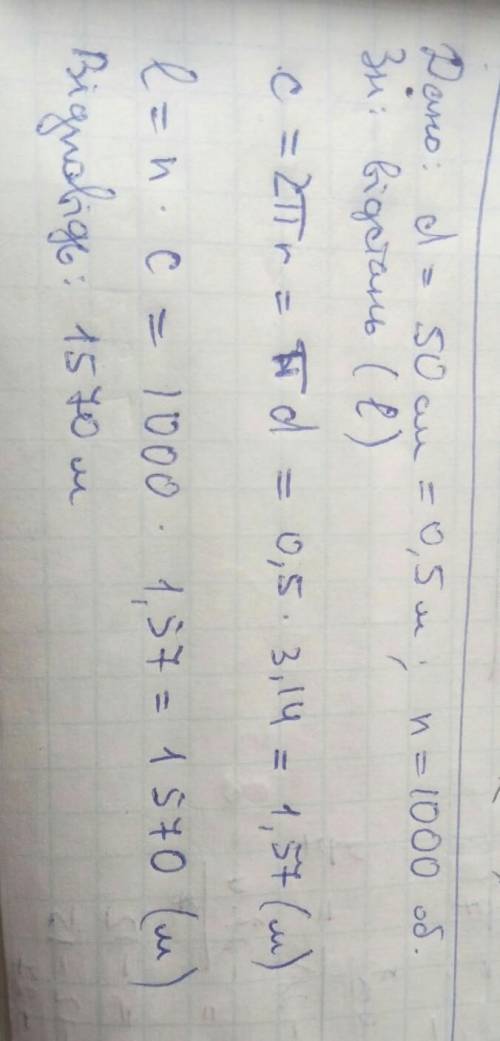 Дано: d = 50 см = 0,5 м; n = 1000 об.
Зн: відстань (l)
c = 2πr = πd = 0,5 · 3,14 = 1,57 (м)
l = n · c = 1000 · 1,57 = 1570 (м)
Відповідь: 1570 м